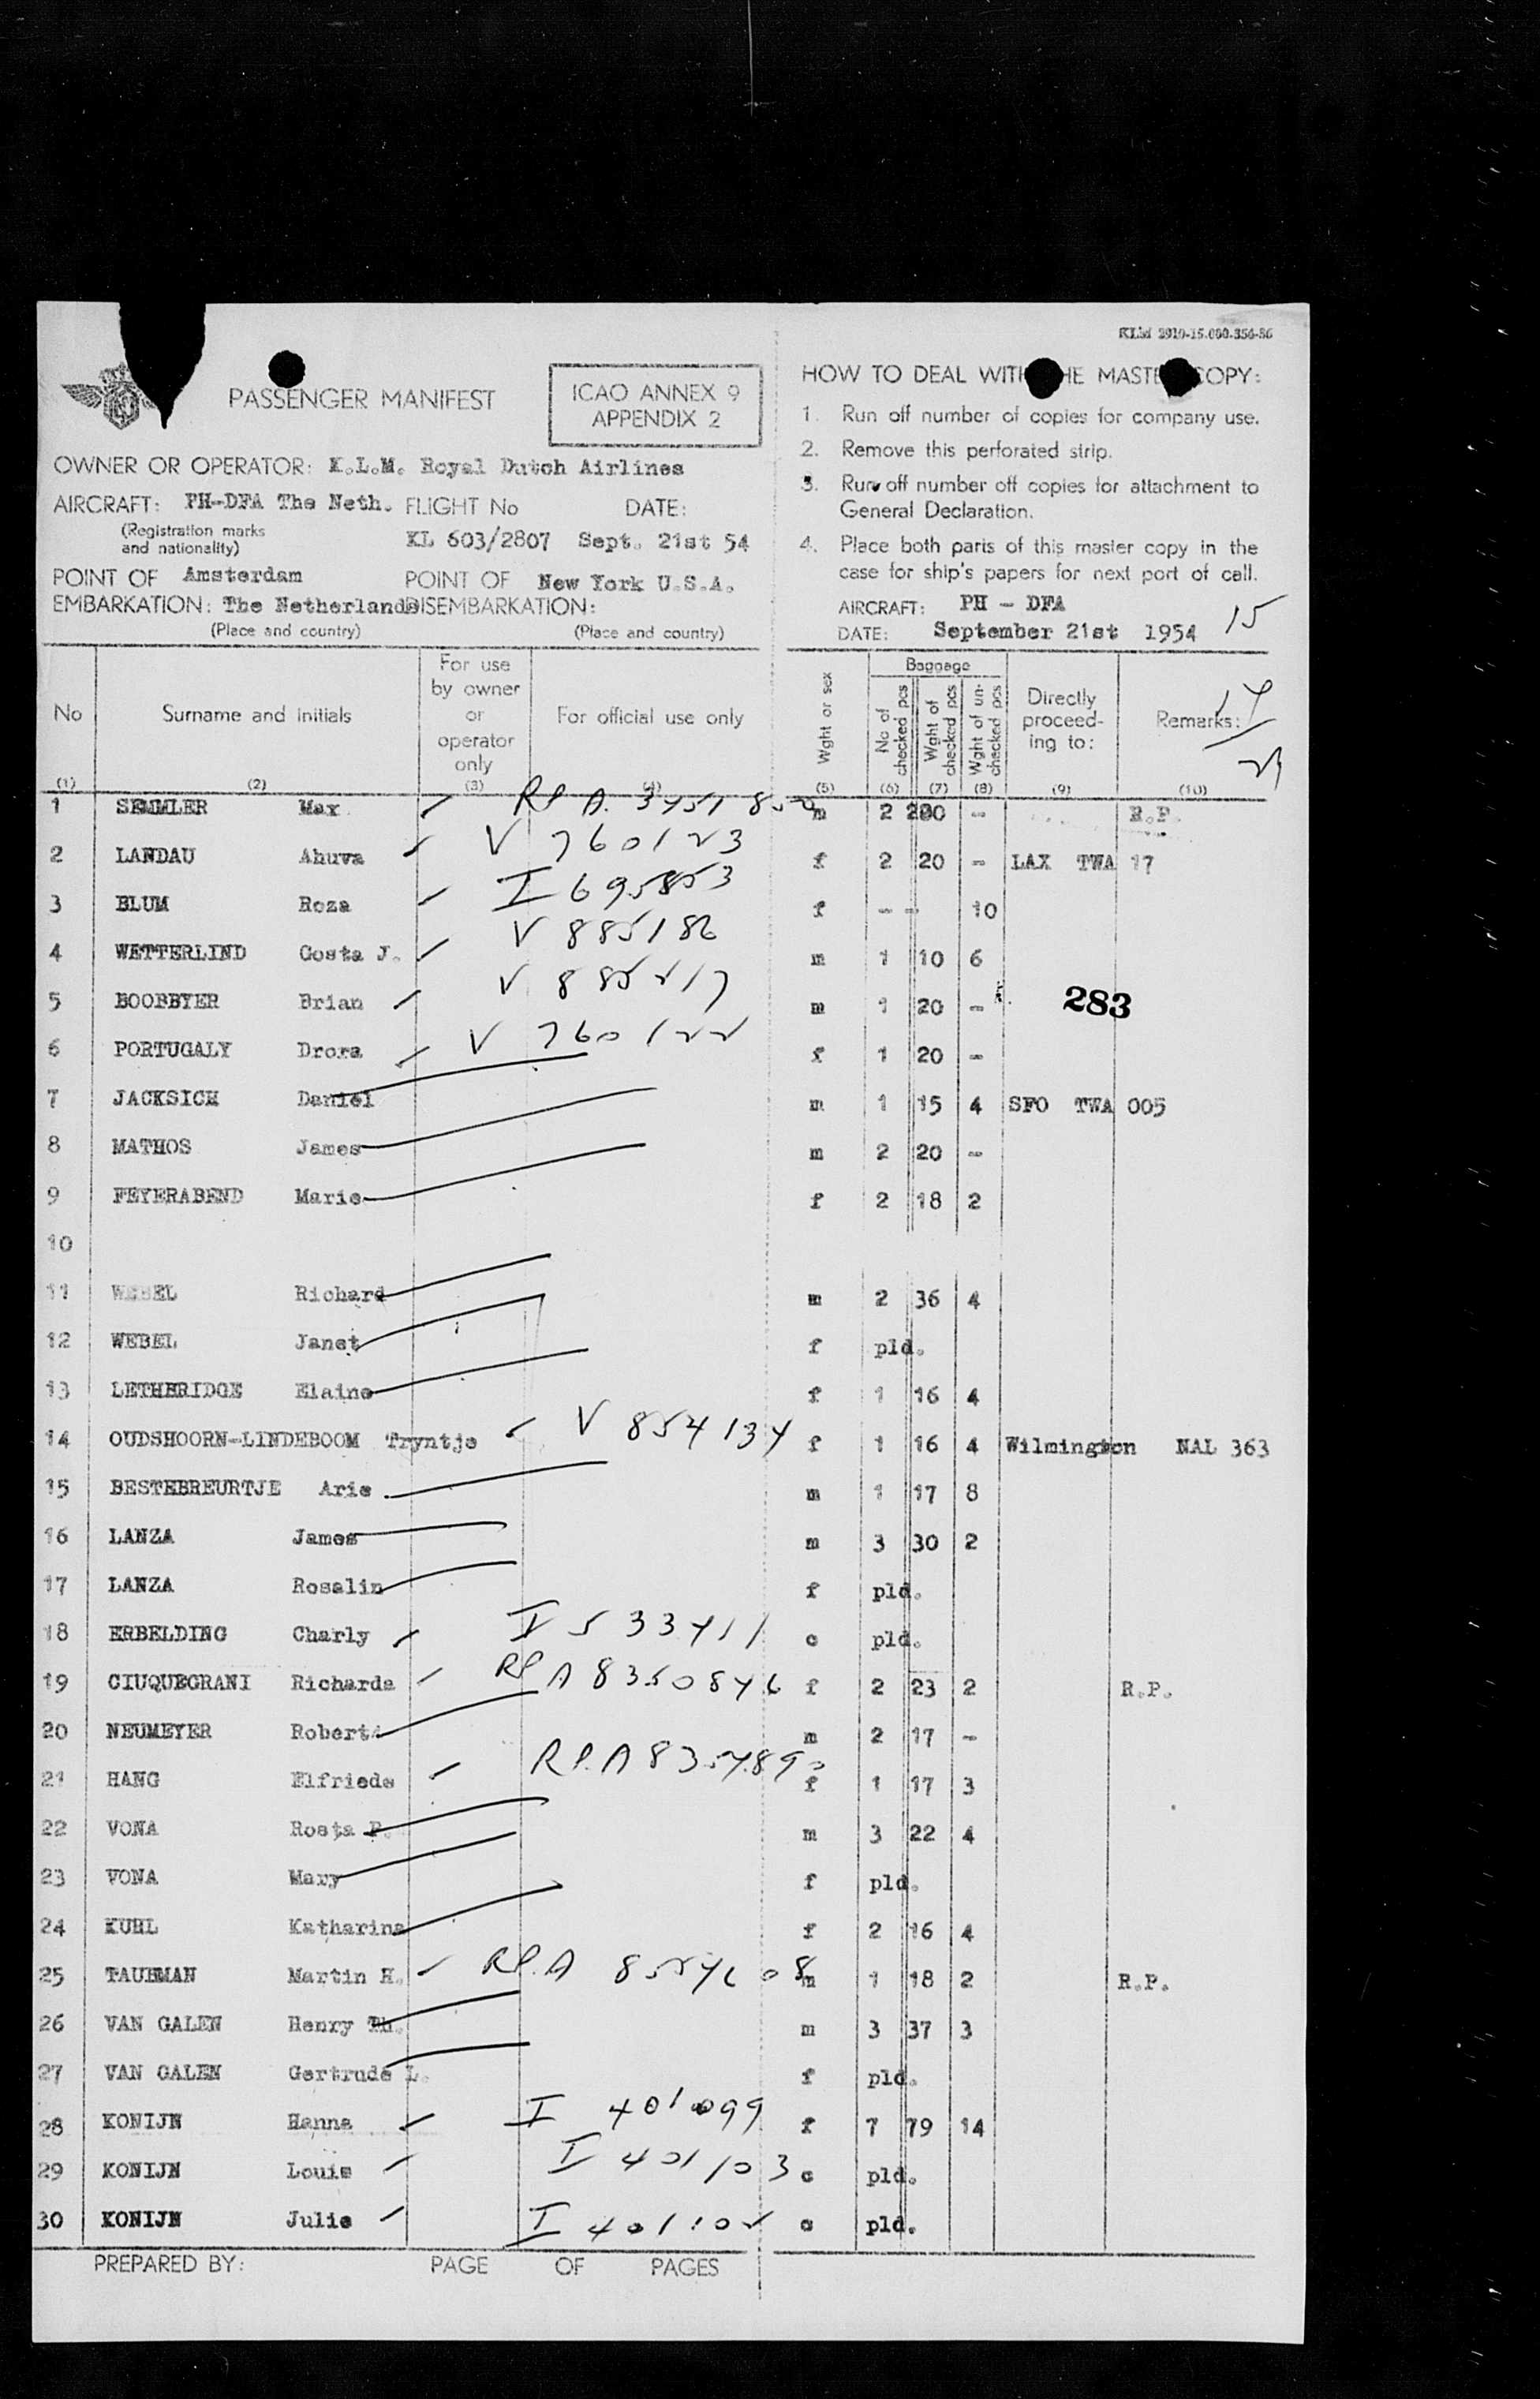 KLM 2910-15.000-354-86
PASSENGER MANIFEST
ICAO ANNEX 9
APPENDIX 2
OWNER OR OPERATOR: K.L.M. Royal Dutch Airlines
AIRCRAFT: PH-DFA The Neth. FLIGHT No DATE:
(Registration marks
and nationality)
KL 603/2807 Sept. 21st 54
POINT OF Amsterdam POINT OF New York U.S.A.
EMBARKATION: The Netherlands DISEMBARKATION:
(Place and country) (Place and country)
HOW TO DEAL WITH THE MASTER COPY:
1. Run off number of copies for company use.
2. Remove this perforated strip.
3. Run off number off copies for attachment to
General Declaration.
4. Place both parts of this master copy in the
case for ship's papers for next port of call.
AIRCRAFT: PH - DFA
DATE: September 21st 1954 15
No Surname and initials For use by owner or operator only For official use only Wght or sex Baggage No of checked pcs Wght of checked pcs Wght of un-checked pcs Directly proceed-ing to: Remarks: 14
(1) (2) (3) (4) (5) (6) (7) (8) (9) (10)
1 SEMMLER Max m 2 - R.P.
2 LANDAU Ahuva V 760123 f 2 20 - LAX TWA 17
3 BLUM Roza I 695853 f - - 10
4 WETTERLIND Gosta J. V 885186 m 1 10 6
5 BOOBBYER Brian V 885217 m 1 20 -
283
6 PORTUGALY Drora V 760122 f 1 20 -
7 JACKSICH Daniel m 1 15 4 SFO TWA 005
8 MATHOS James m 2 20 -
9 FEYERABEND Marie f 2 18 2
10
11 WEBEL Richard m 2 36 4
12 WEBEL Janet f pld.
13 LETHBRIDGE Elaine f 1 16 4
14 OUDSHOORN-LINDEBOOM Tryntje V 854134 f 1 16 4 Wilmington NAL 363
15 BESTEBREURTJE Arie m 1 17 8
16 LANZA James m 3 30 2
17 LANZA Rosalin f pld.
18 ERBELDING Charly I 533411 c pld.
19 CIUQUEGRANI Richarda RP A 8350846 f 2 23 2 R.P.
20 NEUMEYER Robert m 2 17 -
21 HANG Elfriede RP.A 8354890 f 1 17 3
22 VONA Rosta P. m 3 22 4
23 VONA Mary f pld.
24 KUHL Katharina f 2 16 4
25 TAUBMAN Martin H. RP.A m 1 18 2 R.P.
26 VAN GALEN Henry Th. m 3 37 3
27 VAN GALEN Gertrude L. f pld.
28 KONIJN Hanna I 401099 f 7 79 14
29 KONIJN Louis I 401103 c pld.
30 KONIJN Julie I 401102 c pld.
PREPARED BY: PAGE OF PAGES